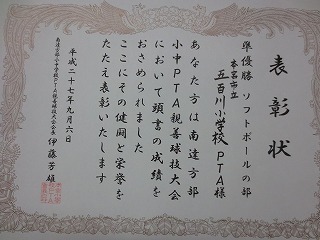 表彰状
準優勝 ソフトボールの部
本宮市立
五百川小学校 PTA様
あなた方は南達方部
小中PTA親善球技大会
において頭書の成績を
おさめられました
ここにその健闘と栄誉を
たたえ表彰いたします
平成二十七年九月六日
南達方部小中学校PTA親善球技大会会長 伊藤芳雄